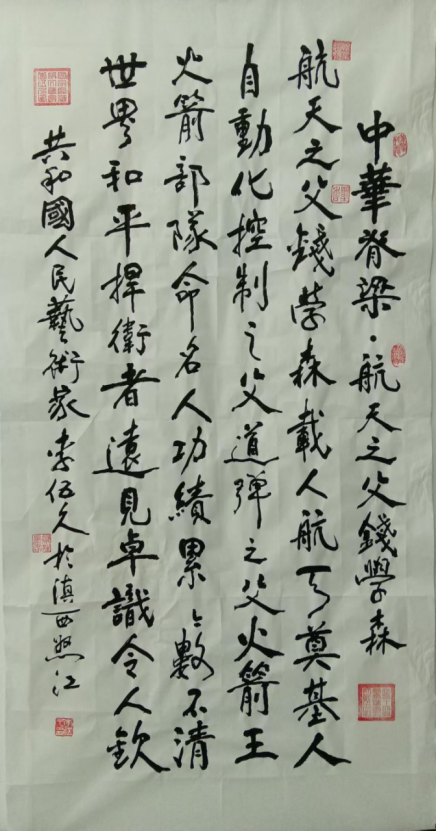 中華脊梁·航天之父錢學森
航天之父錢学森載人航天奠基人
自動化控制之父道弹之父火箭王
火箭部隊命名人功績累々數不清
世界和平捍衛者遠見卓識令人欽
共和國人民藝術家李伍久於滇西怒江